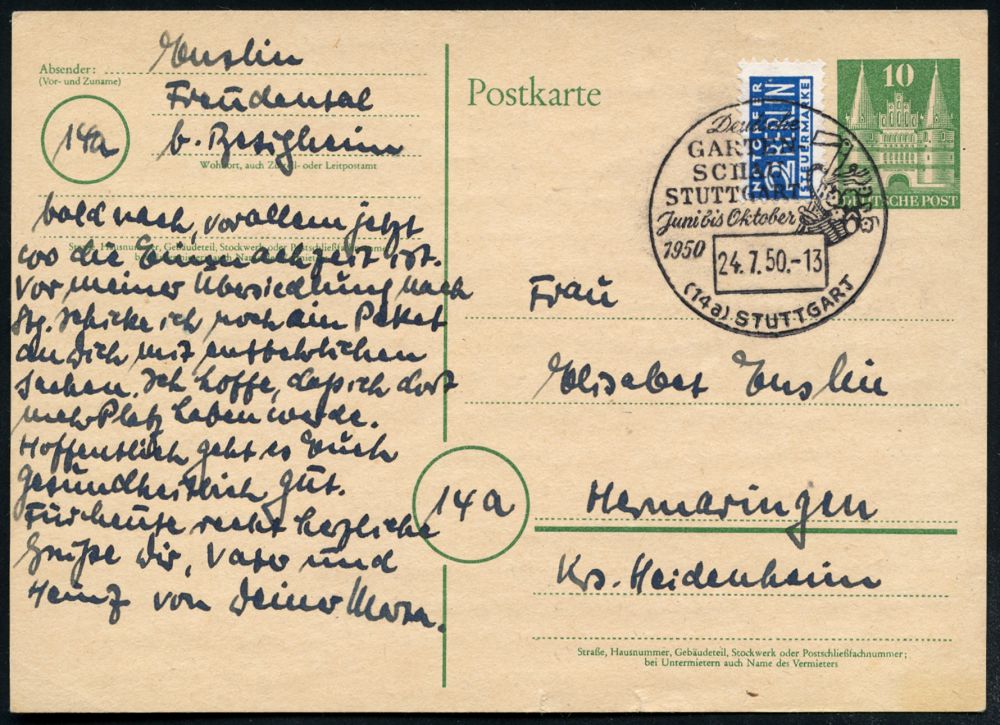 Absender:
(Vor- und Zuname)
Enslin
Freudental
14a
b. Besigheim
Wohnort, auch Zustell- oder Leitpostamt
Straße, Hausnummer, Gebäudeteil, Stockwerk oder Postschließfachnummer
bei Untermietern auch Name des Vermieters
bald nach, vor allem jetzt
wo die Einmachzeit ist.
Vor meiner Übersiedlung nach
Stg. schicke ich noch ein Paket
an Dich mit entbehrlichen
Sachen. Ich hoffe, daß ich dort
mehr Platz haben werde.
Hoffentlich geht es Euch
gesundheitlich gut.
Für heute recht herzliche
Grüße Dir, Vater und
Heinz von Deiner Mama.
Postkarte
NOTOPFER
2 BERLIN
STEUERMARKE
10
DEUTSCHE POST
Deutsche
GARTEN
SCHAU
STUTTGART
Juni bis Oktober
1950
24.7.50.-13
(14a) STUTTGART
Frau
Elisabet Enslin
14a
Hermaringen
Krs. Heidenheim
Straße, Hausnummer, Gebäudeteil, Stockwerk oder Postschließfachnummer;
bei Untermietern auch Name des Vermieters